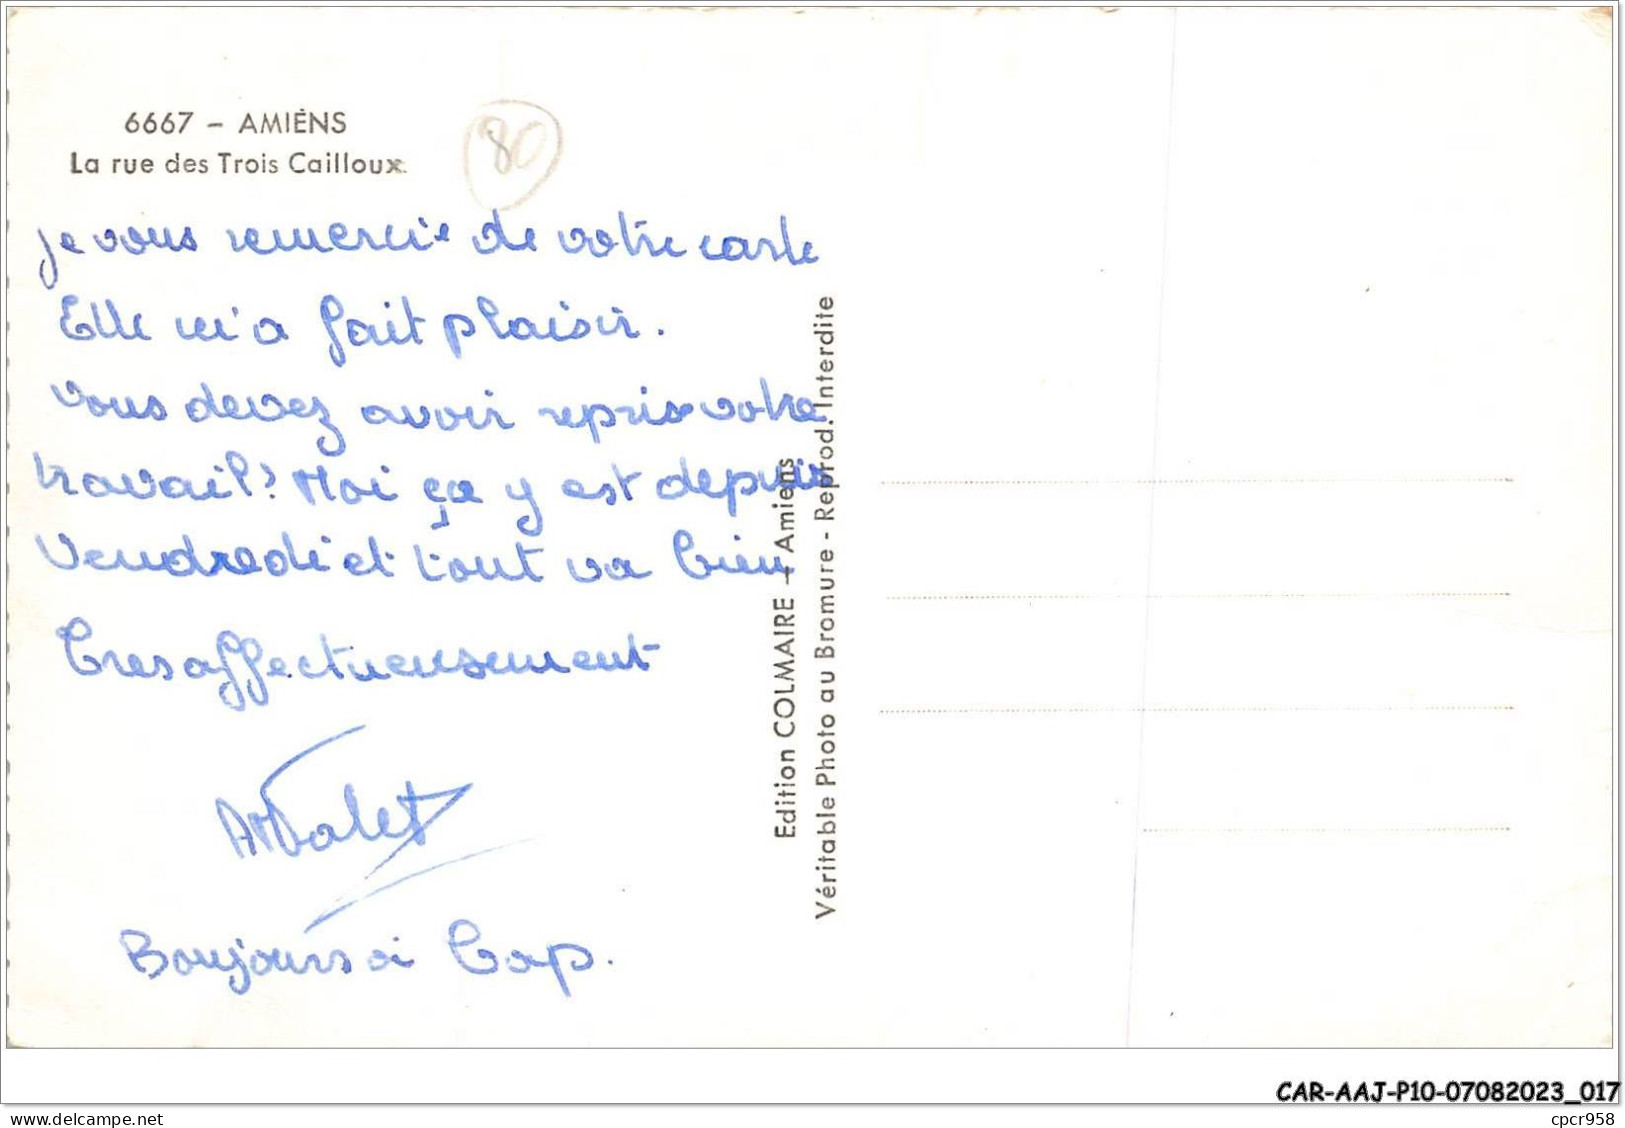 6667 – AMIENS
La rue des Trois Cailloux
80
je vous remercie de votre carte
Elle m'a fait plaisir.
Vous devez avoir repris votre
travail? Moi ça y est depuis
Vendredi et tout va bien
Tres affectueusement
Bonjours à
Edition COLMAIRE – Amiens
Véritable Photo au Bromure - Reprod. Interdite
CAR-AAJ-P10-07082023_017
www.delcampe.net
cpcr958